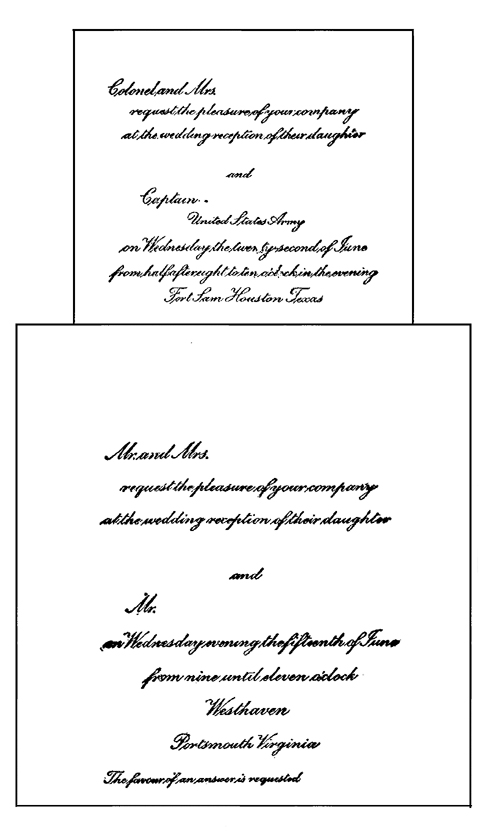 Colonel and Mrs.
request the pleasure of your company
at the wedding reception of their daughter
and
Captain
United States Army
on Wednesday, the twenty-second of June
from half after eight to ten o'clock in the evening
Fort Sam Houston Texas
Mr. and Mrs.
request the pleasure of your company
at the wedding reception of their daughter
and
Mr.
on Wednesday evening, the fifteenth of June
from nine until eleven o'clock
Westhaven
Portsmouth Virginia
The favour of an answer is requested